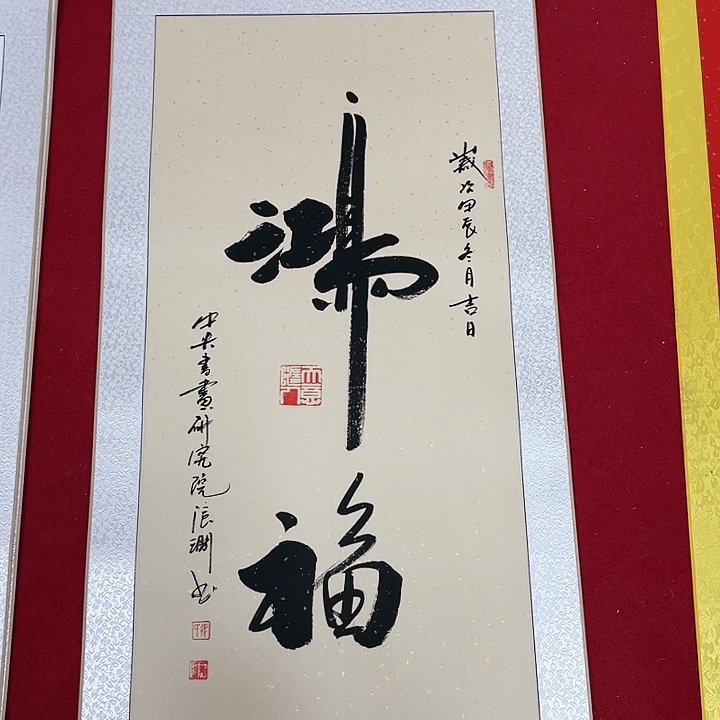 歲次甲辰冬月吉日
瑞福
中央書畫研究院张渊书